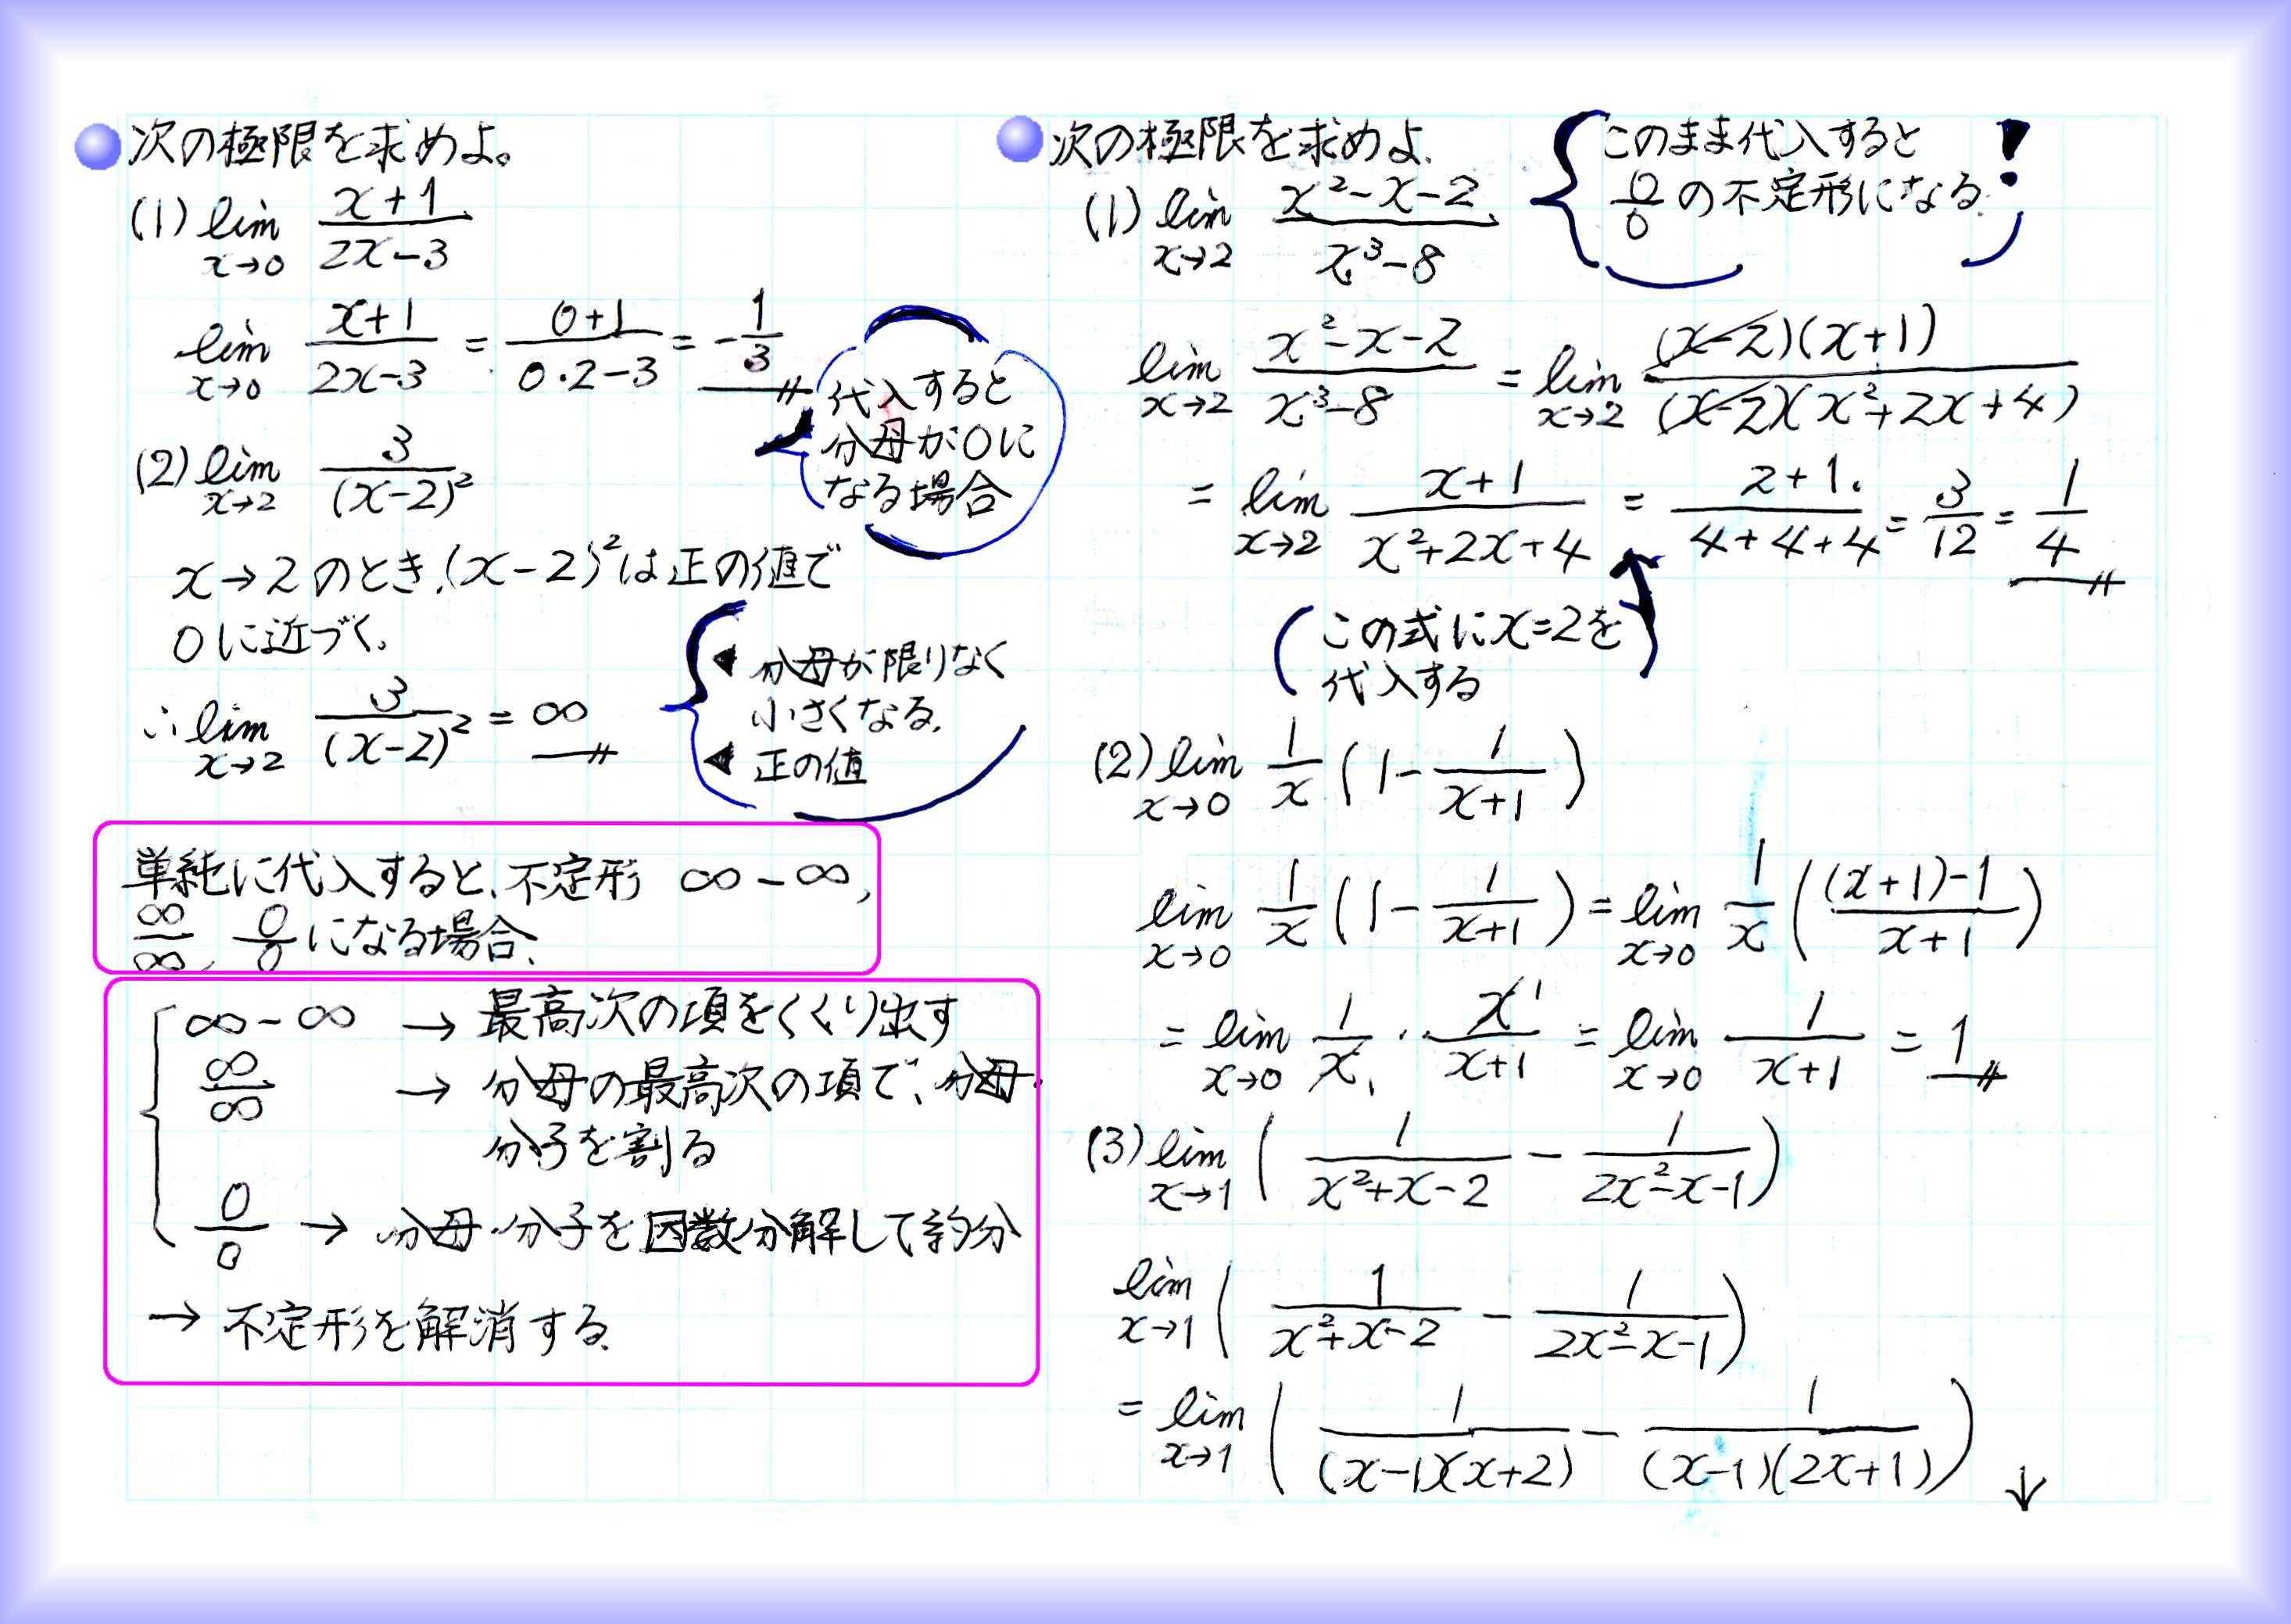 次の極限を求めよ。
(1) lim_{x→0} \frac{x+1}{2x-3}
lim_{x→0} \frac{x+1}{2x-3} = \frac{0+1}{0・2-3} = -\frac{1}{3}
(2) lim_{x→2} \frac{3}{(x-2)^2}
代入すると
分母が0に
なる場合
x→2のとき、(x-2)^2は正の値で
0に近づく。
∴ lim_{x→2} \frac{3}{(x-2)^2} = ∞
◀ 分母が限りなく
小さくなる.
◀ 正の値
単純に代入すると、不定形 ∞-∞,
\frac{∞}{∞}, \frac{0}{0} になる場合、
∞-∞ → 最高次の項をくくり出す
\frac{∞}{∞} → 分母の最高次の項で、分母・
分子を割る
\frac{0}{0} → 分母・分子を因数分解して約分
→ 不定形を解消する.
次の極限を求めよ.
(1) lim_{x→2} \frac{x^2-x-2}{x^3-8}
このまま代入すると
\frac{0}{0}の不定形になる. !
lim_{x→2} \frac{x^2-x-2}{x^3-8} = lim_{x→2} \frac{(x-2)(x+1)}{(x-2)(x^2+2x+4)}
= lim_{x→2} \frac{x+1}{x^2+2x+4} = \frac{2+1}{4+4+4} = \frac{3}{12} = \frac{1}{4}
(この式にx=2を
代入する)
(2) lim_{x→0} \frac{1}{x} (1-\frac{1}{x+1})
lim_{x→0} \frac{1}{x} (1-\frac{1}{x+1}) = lim_{x→0} \frac{1}{x} (\frac{(x+1)-1}{x+1})
= lim_{x→0} \frac{1}{x} ・ \frac{x}{x+1} = lim_{x→0} \frac{1}{x+1} = 1
(3) lim_{x→1} (\frac{1}{x^2+x-2} - \frac{1}{2x^2-x-1})
lim_{x→1} (\frac{1}{x^2+x-2} - \frac{1}{2x^2-x-1})
= lim_{x→1} (\frac{1}{(x-1)(x+2)} - \frac{1}{(x-1)(2x+1)}) ↓